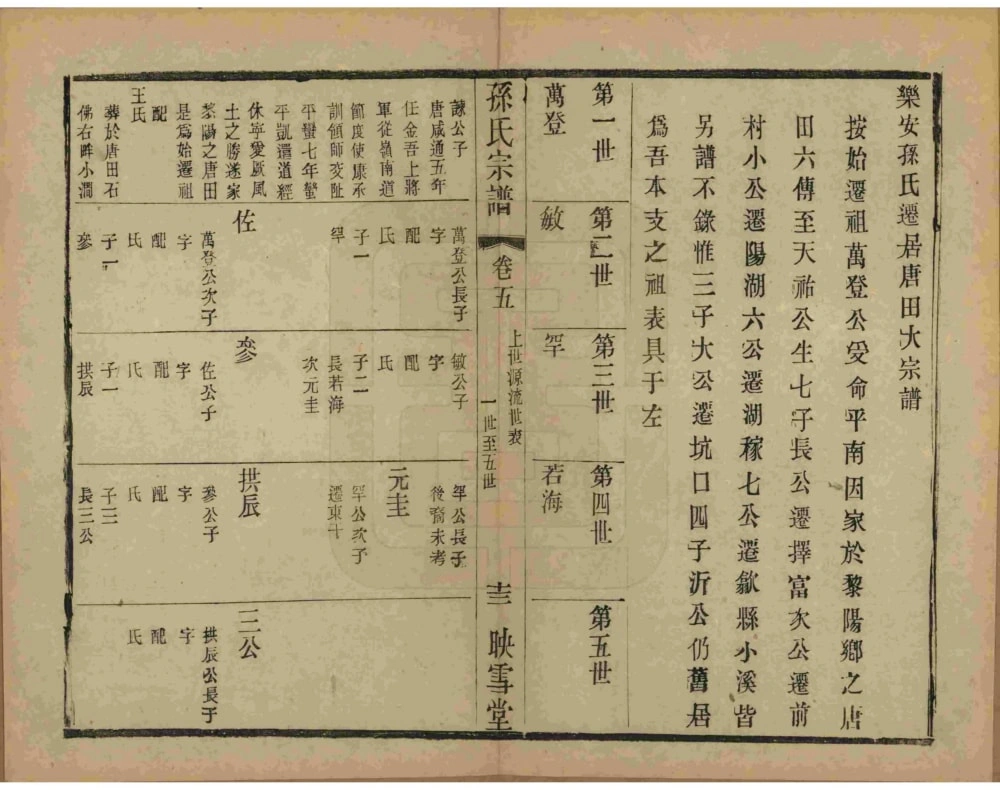 樂安孫氏遷居唐田大宗譜
按始遷祖萬登公受命平南因家於黎陽鄉之唐
田六傳至天祐公生七子長公遷擇富次公遷前
村小公遷陽湖六公遷湖稼七公遷歙縣小溪皆
另譜不錄惟三子大公遷坑口四子沂公仍舊居
爲吾本支之祖表具于左
第一世
第二世
第三世
第四世
第五世
萬登
敏
罕
若海
孫氏宗譜
卷五
上世源流世表
一世至五世
十三
映雪堂
諫公子
唐咸通五年
任金吾上將
軍從嶺南道
節度使康承
訓領師交趾
平蠻七年蠻
平凱還道經
休寧愛厥風
土之勝遂家
黎陽之唐田
是爲始遷祖
配
王氏
葬於唐田石
佛右畔小澗
萬登公長子
字
配
氏
子一
罕
佐
萬登公次子
字
配
氏
子一
參
敏公子
字
配
氏
子二
長若海
次元圭
參
佐公子
字
配
氏
子一
拱辰
罕公長子
後裔未考
元圭
罕公次子
遷東十
拱辰
參公子
字
配
氏
子三
長三公
三公
拱辰公長子
字
配
氏